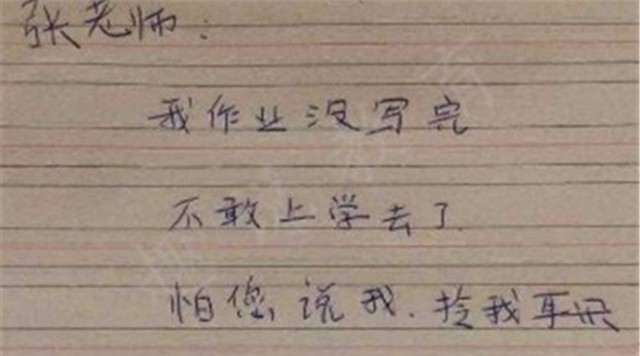 张老师:
我作业没写完
不敢上学去了.
怕您说我.拎我耳朵